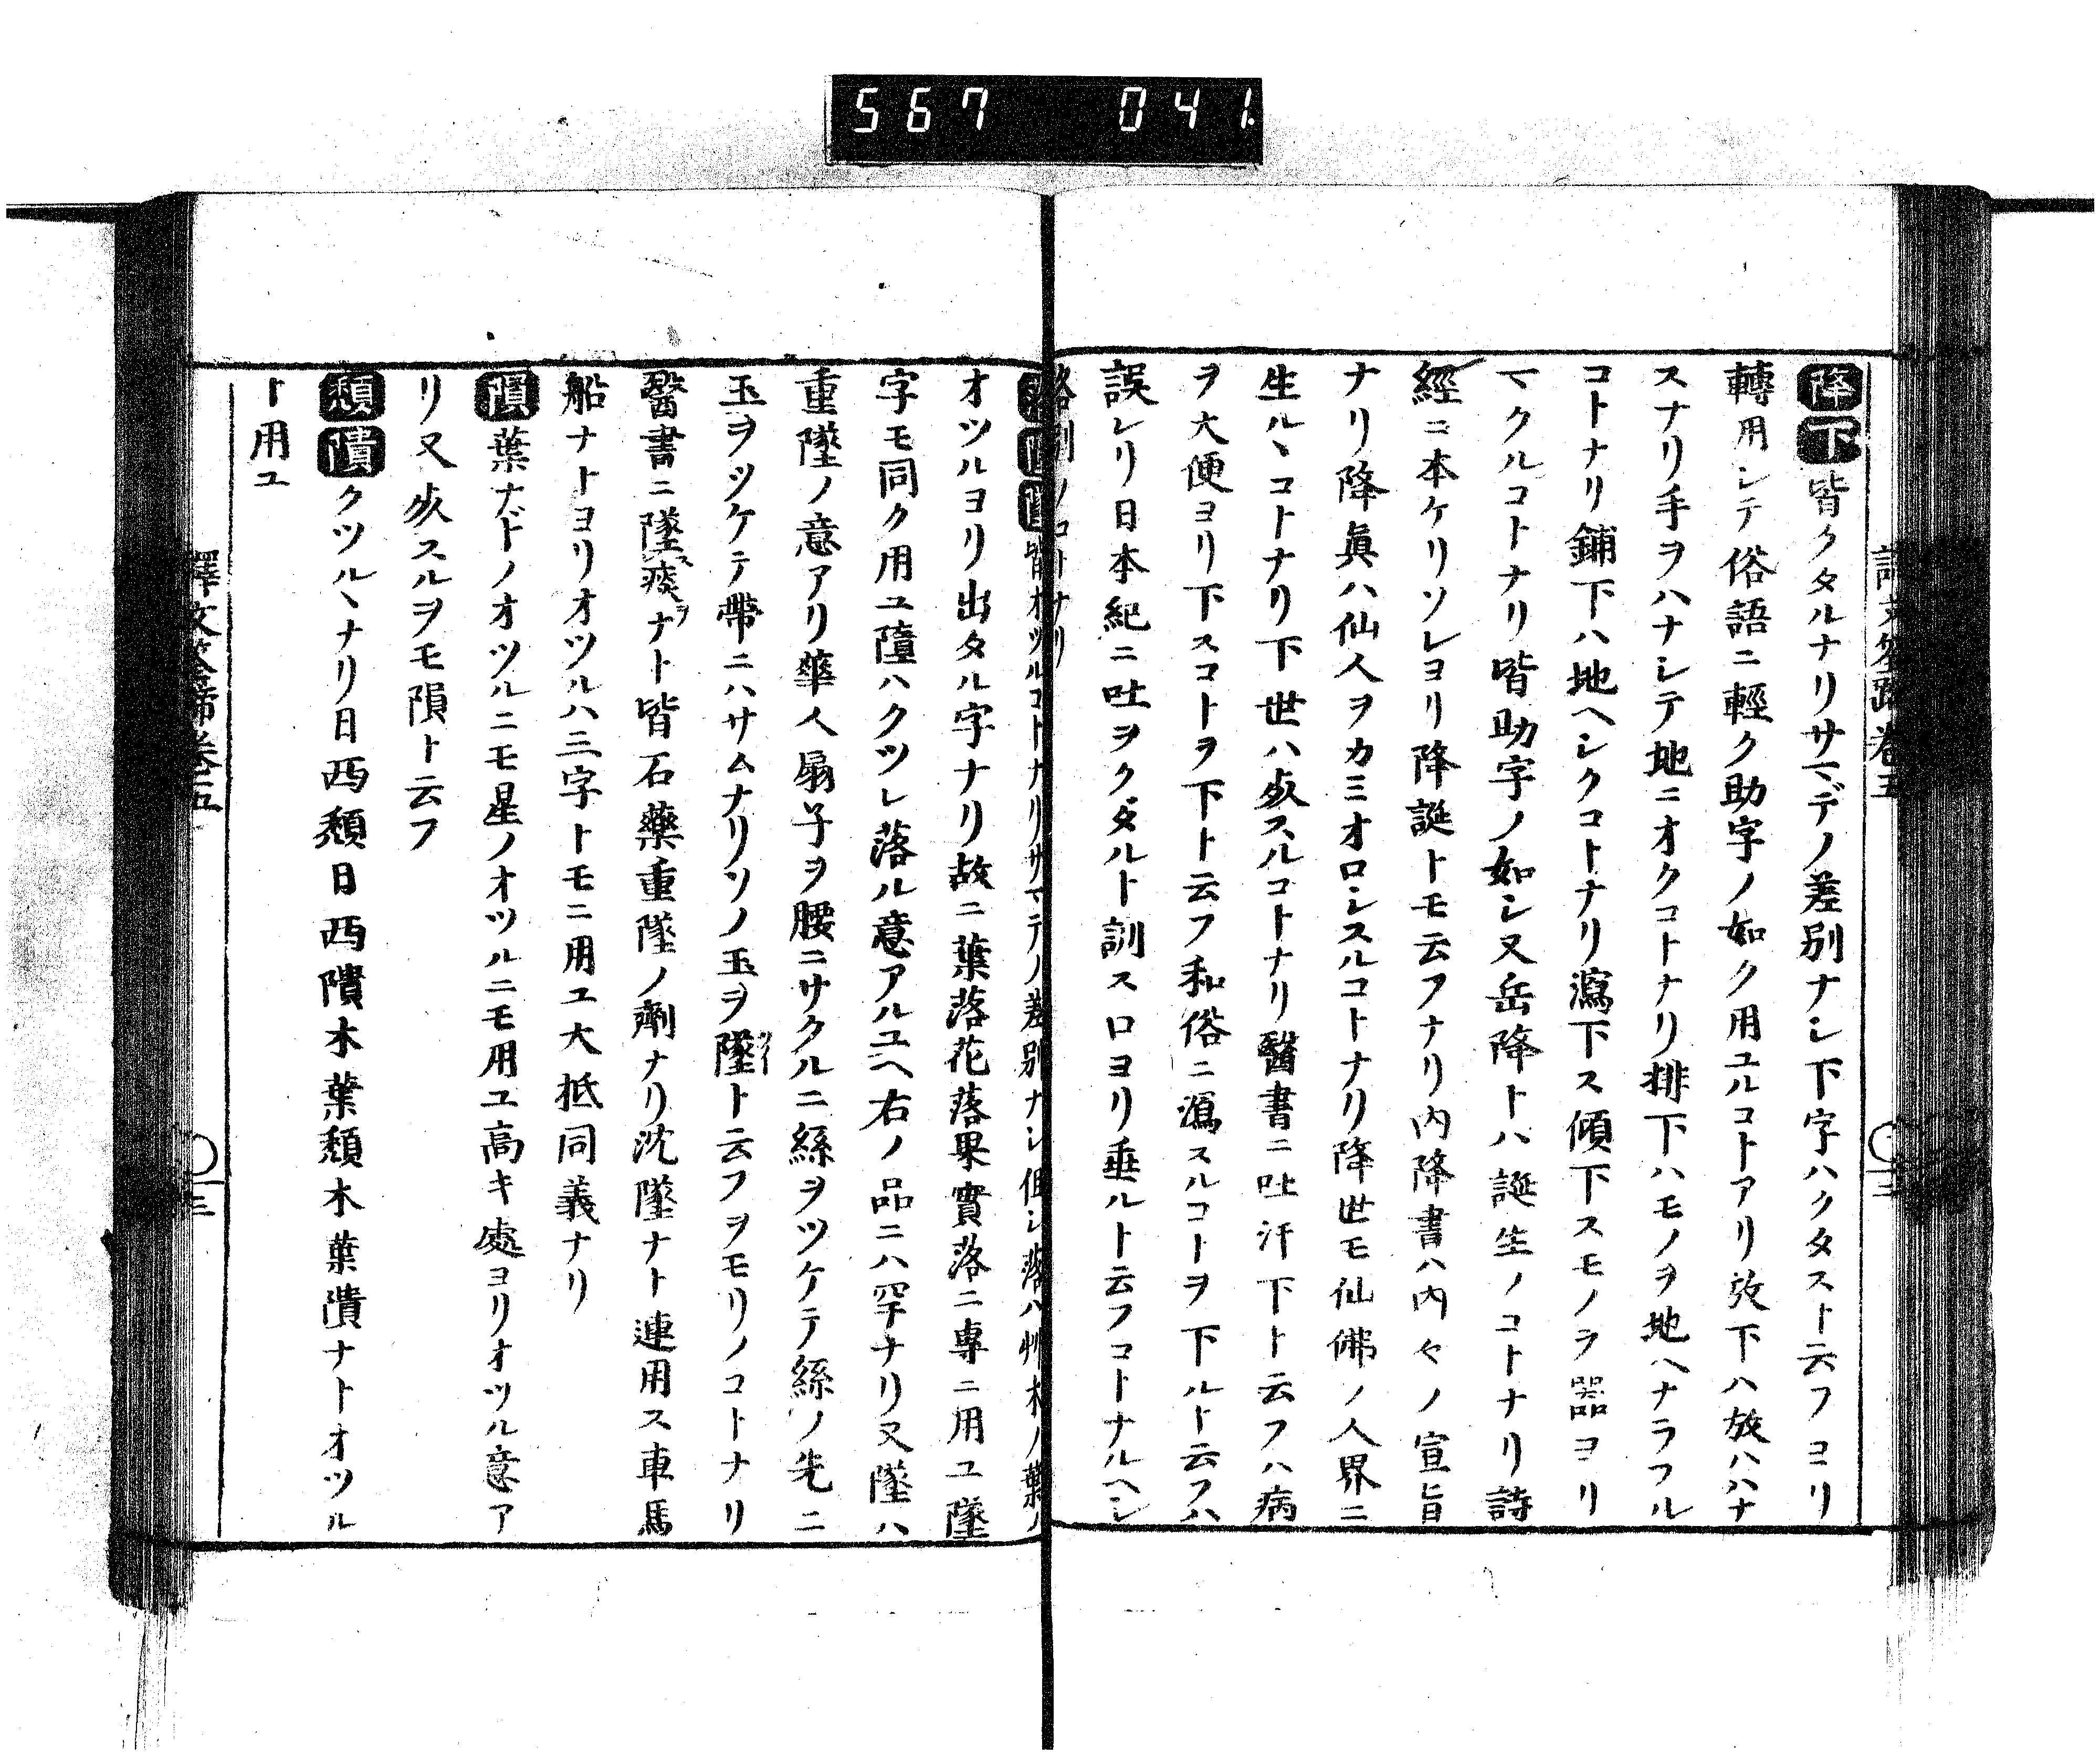 567 041
譯文筌蹄卷五
降下皆クタルナリサマデノ差別ナシ下字ハクタスト云フヨリ
轉用シテ俗語ニ輕ク助字ノ如ク用ユルコトアリ放下ハ放ハハナ
スナリ手ヲハナシテ地ニオクコトナリ排下ハモノヲ地ヘナラフル
コトナリ鋪下ハ地ヘシクコトナリ瀉下ス傾下スモノヲ器ヨリ
マクルコトナリ皆助字ノ如シ又岳降トハ誕生ノコトナリ詩
經ニ本ケリソレヨリ降誕トモ云フナリ内降書ハ内々ノ宣旨
ナリ降眞ハ仙人ヲカミオロシスルコトナリ降世モ仙佛ノ人界ニ
生ルヽコトナリ下世ハ死スルコトナリ醫書ニ吐汗下ト云フハ病
ヲ大便ヨリ下スコトヲ下ト云フ和俗ニ瀉スルコトヲ下ルト云フハ
誤レリ日本紀ニ吐ヲクダルト訓ス口ヨリ垂ルト云フコトナルヘシ
ノコトナリ
皆オツルコトナリサマテノ差別ナシ但シ落ハ艸木ノ葉ノ
オツルヨリ出タル字ナリ故ニ葉落花落果實落ニ專ニ用ユ墜
字モ同ク用ユ墮ハクツレ落ル意アルユヘ右ノ品ニハ罕ナリ又墜ハ
重墜ノ意アリ華人扇子ヲ腰ニサクルニ絲ヲツケテ絲ノ先ニ
玉ヲツケテ帶ニハサムナリソノ玉ヲ墜ト云フヲモリノコトナリ
醫書ニ墜痰ナト皆石藥重墜ノ劑ナリ沈墜ナト連用ス車馬
船ナトヨリオツルハ三字トモニ用ユ大抵同義ナリ
隕葉ナドノオツルニモ星ノオツルニモ用ユ高キ處ヨリオツル意ア
リ又死スルヲモ隕ト云フ
頹隤クツルヽナリ日西頹日西隤木葉頹木葉隤ナトオツル
ト用ユ
譯文筌蹄卷五
〇三